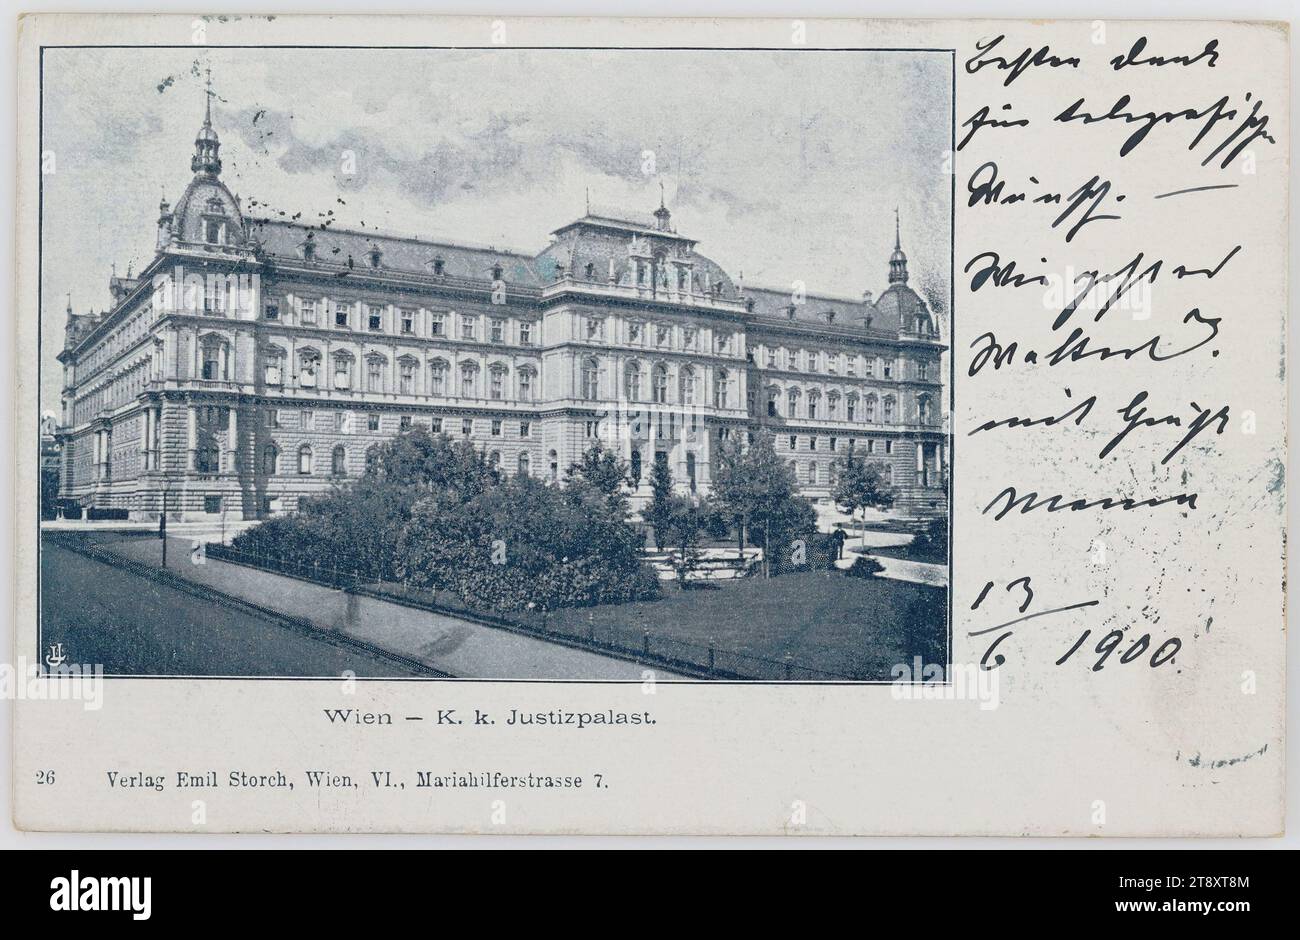 Besten Dank
für telegrafischen
Wunsch. —
Wie geht es
mit Grüße
13/6 1900.
Wien — K. k. Justizpalast.
26 Verlag Emil Storch, Wien, VI., Mariahilferstrasse 7.
alamy
Image ID: 2T8XT8M
www.alamy.com